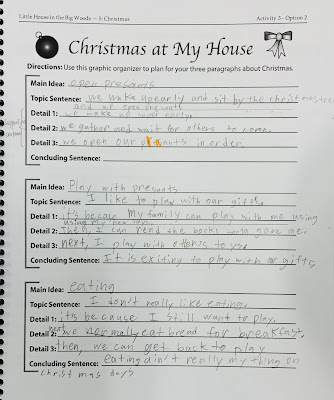 Little House in the Big Woods – 5: Christmas
Activity 3 - Option 2
Christmas at My House
Directions: Use this graphic organizer to plan for your three paragraphs about Christmas.
Main Idea: open presants
Topic Sentence: we wake up early and sit by the christmas tree
and we open presants
Detail 1: we wake up over early.
Detail 2: we gather and wait for others to come.
Detail 3: we open our presants in order.
Concluding Sentence:
Main Idea: Play with presants
Topic Sentence: I like to play with our gifts.
Detail 1: it's becaue my family can play with me using
using my new toys.
Detail 2: Then, I can read the books gave me.
Detail 3: next, I play with others toys
Concluding Sentence: It is exiting to play with gifts
Main Idea: eating
Topic Sentence: I don't really like eating.
Detail 1: it is because I still want to play.
Detail 2: next we normally eat bread for breakfast.
Detail 3: then, we can get back to play
Concluding Sentence: eating ain't really my thing on
christmas days